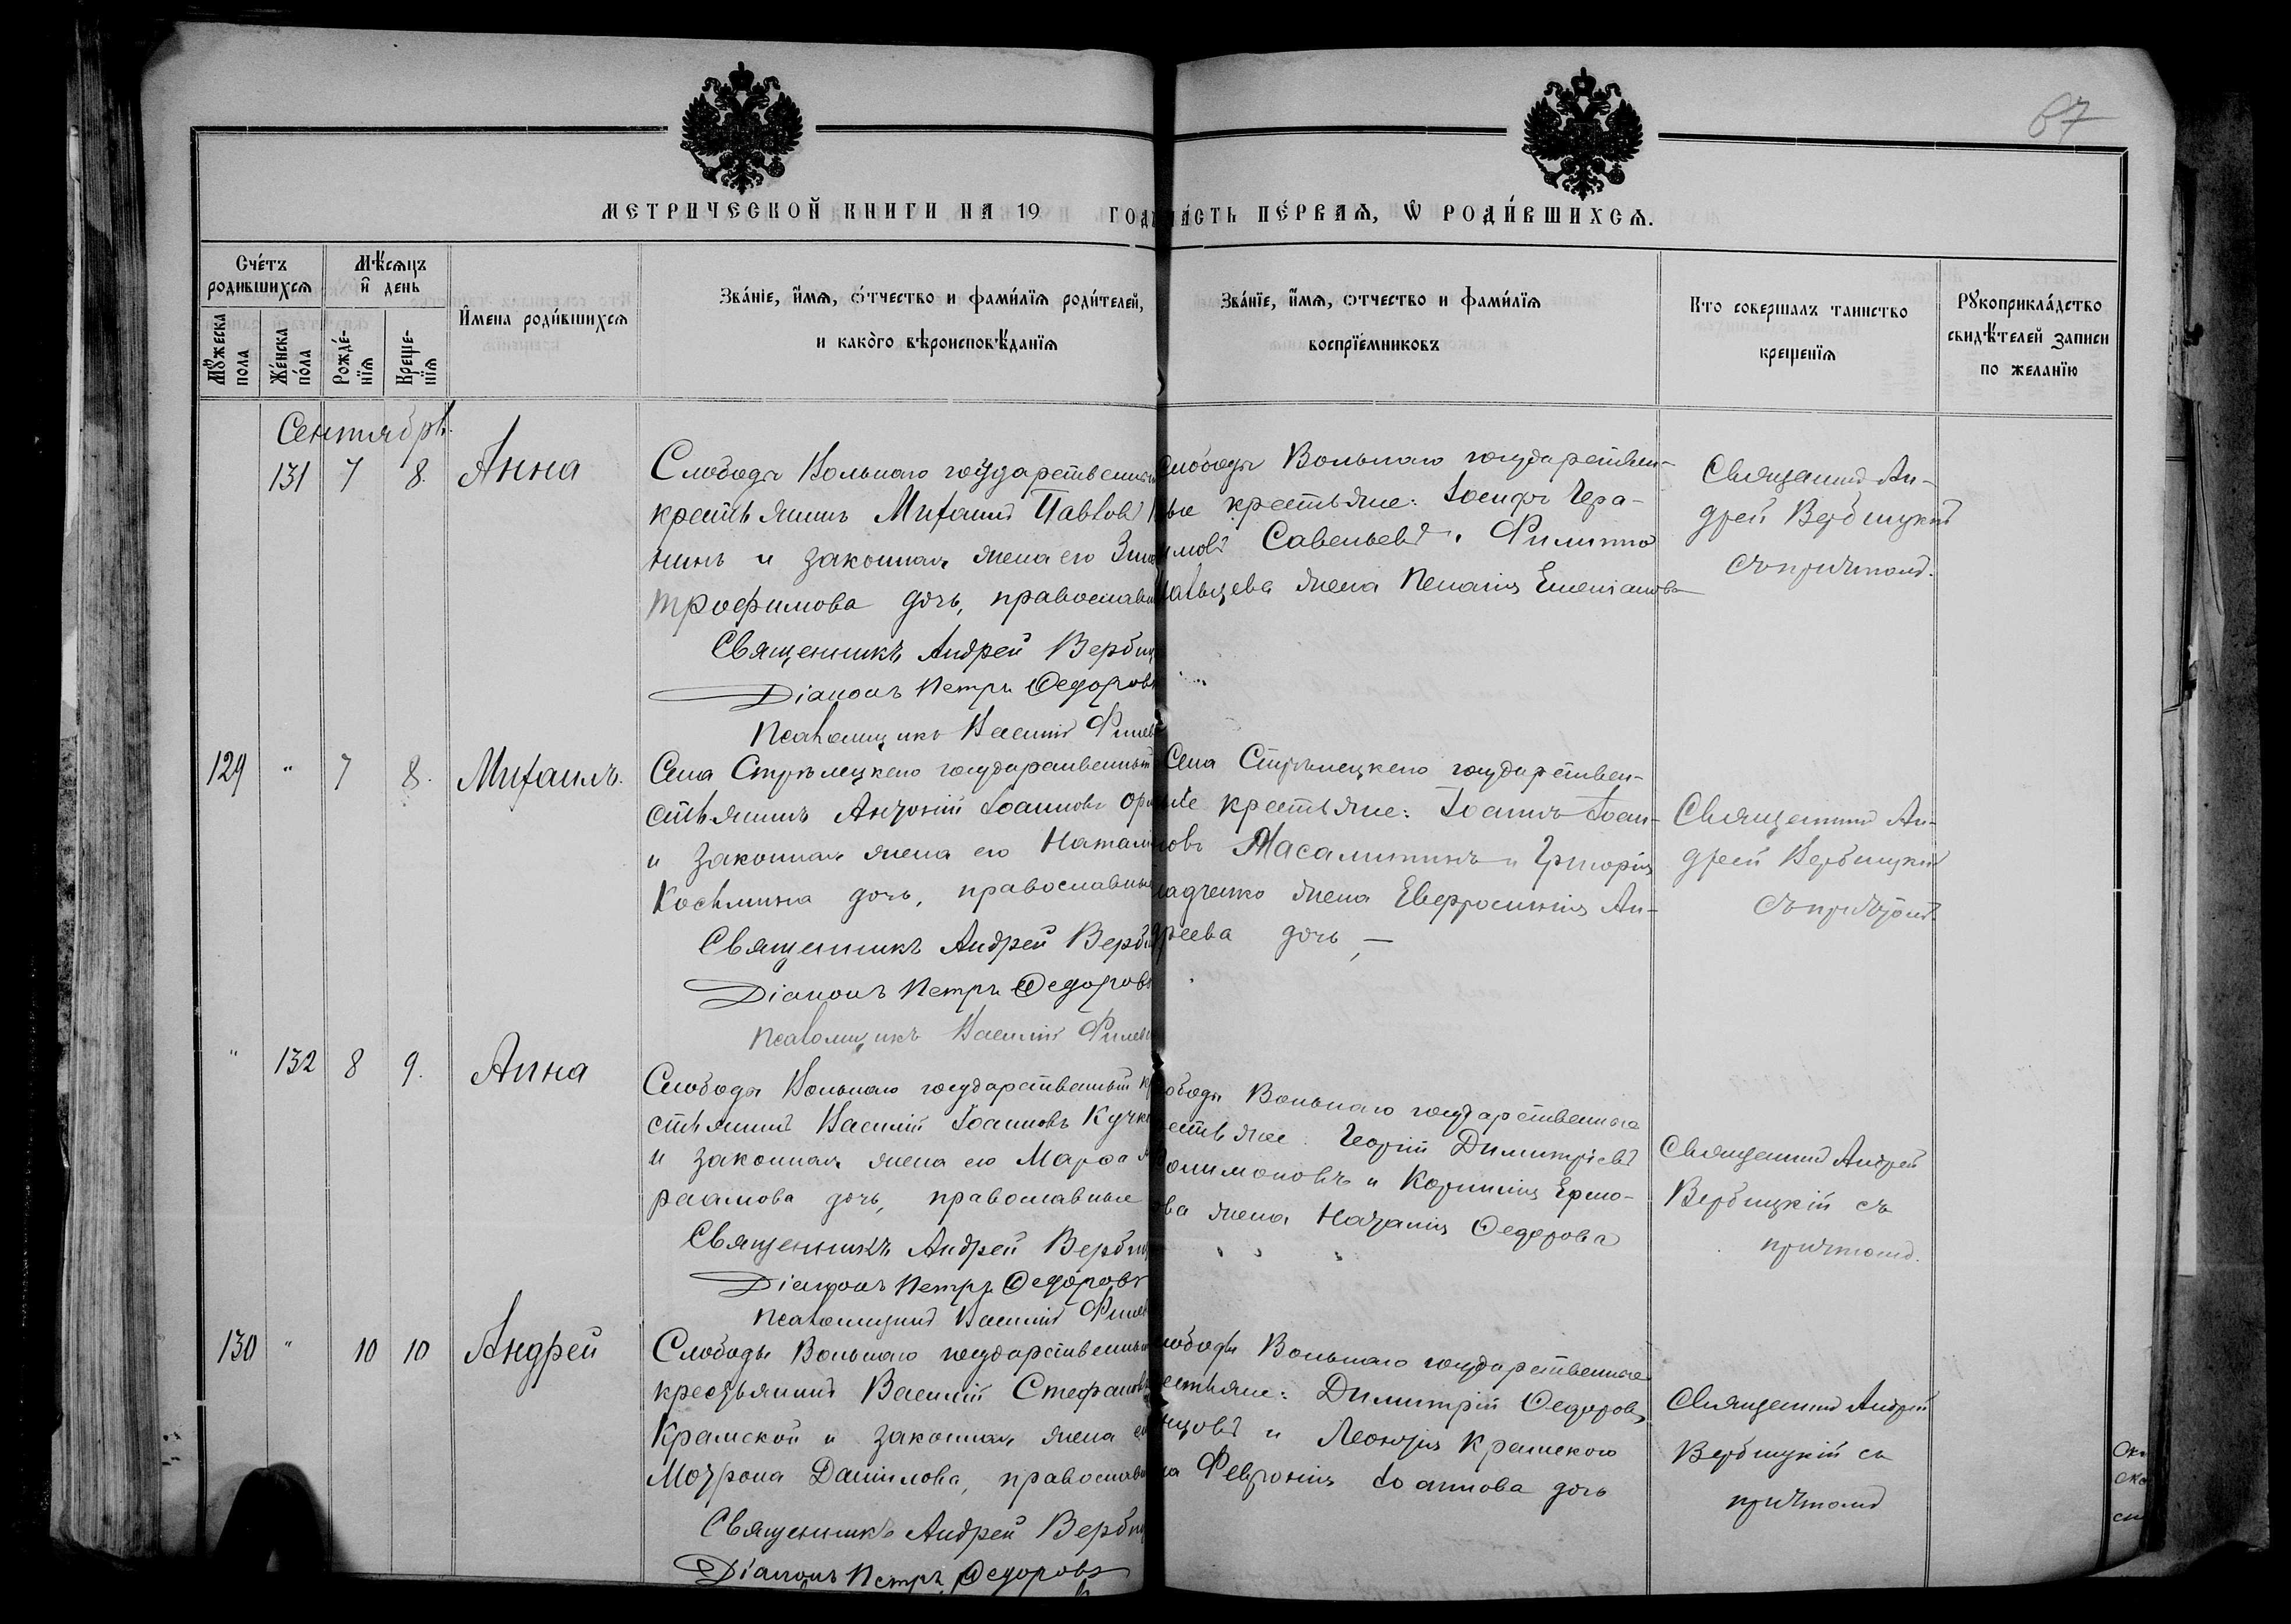 67
МЕТРИЧЕСКОЙ КНИГИ НА 19 ГОДЪ ЧА́СТЬ ПЕ́РВАЯ, Ѿ РОДИ́ВШИХСЯ.
Сче́тъ родившихся
Мѣ́сяцъ и҆ день
И҆мена роди́вшихся
Зва́нїе, и҆́мя, ѻ҆́тчество и фами́лїя роди́телей,
и како́го вѣроисповѣ́данїя
Зва́нїе, и҆́мя, ѻтчество и фами́лїя
воспрїе́мниковъ
Кто совершалъ таинство
крещенїя
Рꙋкоприкла́дство
свидѣ́телей записи
по желанїю
Мꙋжеска пола
Же́нска по́ла
Рожде́-нїя
Креще-нїя
Сентябрь.
131 7 8. Анна
Слободы Вольнаго государственный
крестьянинъ Михаилъ Павловъ
нинъ и законная жена его
Трофимова дочь, православн
Священникъ Андрей Вербиц
Дїаконъ Петръ Ѳедоровъ
Псаломщикъ Василій Филев
Слободы Вольнаго государствен-
ные крестьяне: Іосифъ Гера-
имовъ Савельевъ, Филиппа
жена Пелагія Емелїанова
Священникъ Ан-
дрей Вербицкій
съ причтомъ.
129 " 7 8. Михаилъ.
Села Стрѣлецкаго государственный
стьянинъ Антоній Іоанновъ
и законная жена его Наталі
Косьмина дочь, православные
Священникъ Андрей Верби
Дїаконъ Петръ Ѳедоровъ
Псаломщикъ Василій Филев
Села Стрѣлецкаго государствен-
ные крестьяне: Іоаннъ Іоан-
новъ Масалитинъ и Григорія
ладченко жена Евфросинія Ан-
дреева дочь, —
Священникъ Ан-
дрей Вербицкій
съ причтомъ.
" 132 8 9. Анна
Слободы Вольнаго государственный кр
стьянинъ Василій Іоанновъ Кучк
и законная жена его Марѳа
раамова дочь, православные
Священникъ Андрей Верби
Дїаконъ Петръ Ѳедоровъ
Псаломщикъ Василій Филев
ободы Вольнаго государственные
естьяне: Георгій Димитріевъ
олимоновъ и Корнилія Ермо-
ова жена Наталія Ѳедорова
Священникъ Андрей
Вербицкій съ
причтомъ.
130 " 10 10 Андрей
Слободы Вольнаго государственный
крестьянинъ Василій Стефановъ
Крамской и законная жена е
Матрона Даніилова, православн
Священникъ Андрей Верби
Дїаконъ Петръ Ѳедоровъ
лободы Вольнаго государственные
естьяне: Димитрій Ѳедоровъ
нцовъ и Леонтія Крамского
на Февронія Іоаннова дочь
Священникъ Андрей
Вербицкій съ
причтомъ